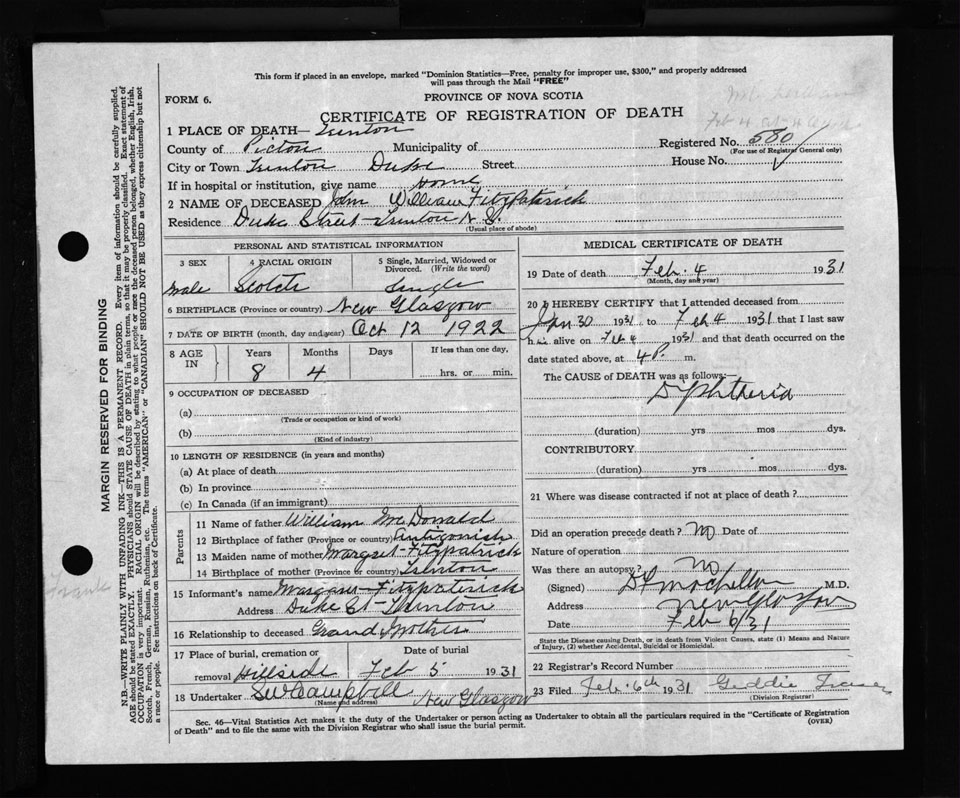 This form if placed in an envelope, marked "Dominion Statistics—Free, penalty for improper use, $300," and properly addressed
will pass through the Mail "FREE"
FORM 6.
PROVINCE OF NOVA SCOTIA
CERTIFICATE OF REGISTRATION OF DEATH
1 PLACE OF DEATH— Trenton
County of Pictou Municipality of Registered No. 580
(For use of Registrar General only)
City or Town Trenton Duke Street House No.
If in hospital or institution, give name Home
2 NAME OF DECEASED John William Fitzpatrick
Residence Duke Street - Trenton N.S.
(Usual place of abode)
PERSONAL AND STATISTICAL INFORMATION
3 SEX 4 RACIAL ORIGIN 5 Single, Married, Widowed or
Divorced. (Write the word)
Male Scotch Single
6 BIRTHPLACE (Province or country) New Glasgow
7 DATE OF BIRTH (month, day and year) Oct 12 1922
8 AGE IN Years Months Days If less than one day,
8 4 hrs. or min.
9 OCCUPATION OF DECEASED
(a)
(Trade or occupation or kind of work)
(b)
(Kind of industry)
10 LENGTH OF RESIDENCE (in years and months)
(a) At place of death
(b) In province
(c) In Canada (if an immigrant)
Parents
11 Name of father William McDonald
12 Birthplace of father (Province or country) Antigonish
13 Maiden name of mother Margret Fitzpatrick
14 Birthplace of mother (Province or country) Trenton
15 Informant's name Margaret Fitzpaterick
Address Duke St - Trenton
16 Relationship to deceased Grand Mother
17 Place of burial, cremation or Date of burial
removal Hillside Feb 5 1931
18 Undertaker SW Campbell New Glasgow
(Name and address)
MEDICAL CERTIFICATE OF DEATH
19 Date of death Feb. 4 1931
(Month, day and year)
20 I HEREBY CERTIFY that I attended deceased from
Jan 30 1931 to Feb 4 1931 that I last saw
him alive on Feb 4 1931 and that death occurred on the
date stated above, at 4 P. m.
The CAUSE of DEATH was as follows:
Diphtheria
(duration) yrs mos dys.
CONTRIBUTORY
(duration) yrs mos dys.
21 Where was disease contracted if not at place of death?
Did an operation precede death? No Date of
Nature of operation
Was there an autopsy? No
(Signed) M.D.
Address New Glasgow
Date Feb 6/31
State the Disease causing Death, or in death from Violent Causes, state (1) Means and Nature
of Injury, (2) whether Accidental, Suicidal or Homicidal.
22 Registrar's Record Number
23 Filed Feb. 6th 1931 Geddie
(Division Registrar)
Sec. 46—Vital Statistics Act makes it the duty of the Undertaker or person acting as Undertaker to obtain all the particulars required in the "Certificate of Registration
of Death" and to file the same with the Division Registrar who shall issue the burial permit.
(OVER)
MARGIN RESERVED FOR BINDING
N.B.—WRITE PLAINLY WITH UNFADING INK—THIS IS A PERMANENT RECORD. Every item of information should be carefully supplied.
AGE should be stated EXACTLY. PHYSICIANS should STATE CAUSE OF DEATH in plain terms, so that it may be properly classified. Exact statement of
OCCUPATION is very important. RACIAL ORIGIN will be described by stating to what people or race the deceased person belonged, whether English, Irish,
Scotch, French, German, Russian, Ruthenian, etc. The terms "AMERICAN" or "CANADIAN" SHOULD NOT BE USED as they express citizenship but not
a race or people. See instructions on back of Certificate.
Frank